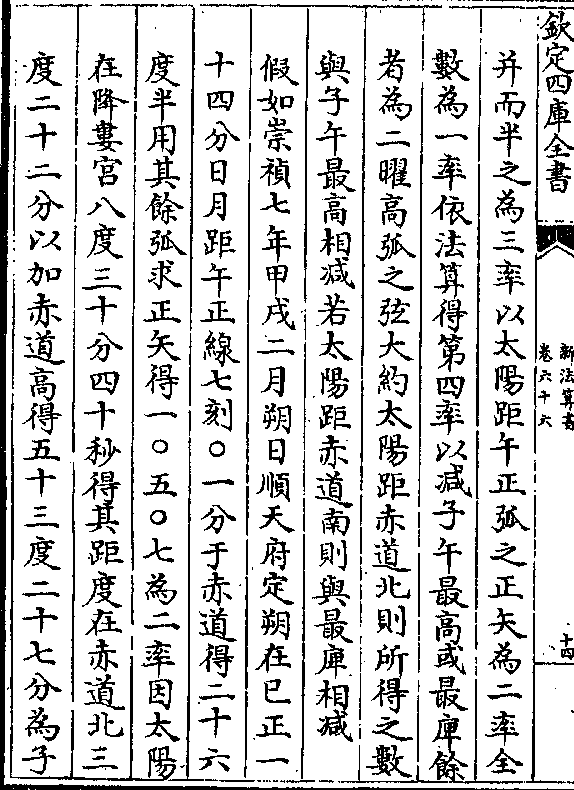 欽定四庫全書
新法算書
卷六十六
十四
并而半之為三率以太陽距午正弧之正矢為二率全
數為一率依法算得第四率以减子午最高或最庳餘
者為二曜高弧之弦大約太陽距赤道北則所得之數
與子午最高相减若太陽距赤道南則與最庳相减
假如崇禎七年甲戌二月朔日順天府定朔在巳正一
十四分日月距午正線七刻○一分于赤道得二十六
度半用其餘弧求正矢得一○五○七為二率因太陽
在降婁宮八度三十分四十秒得其距度在赤道北三
度二十二分以加赤道高得五十三度二十七分為子